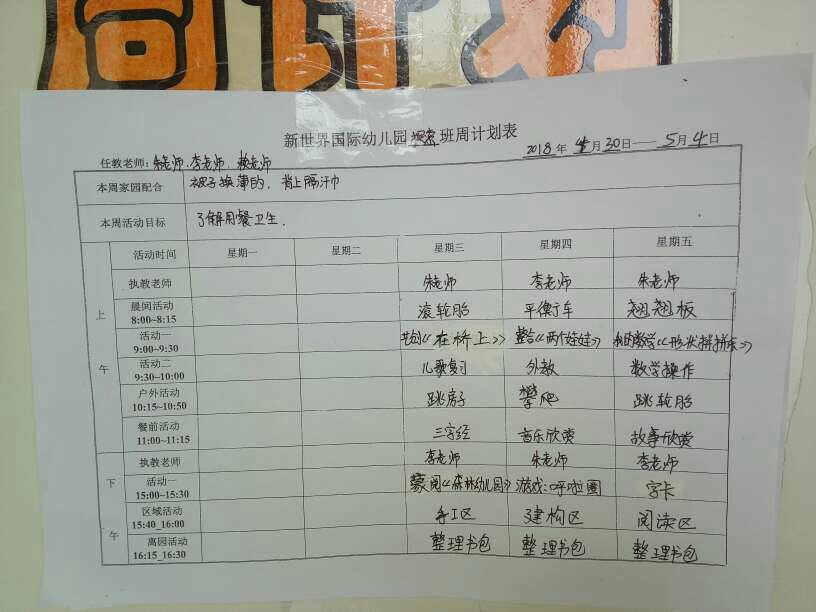 周计划
新世界国际幼儿园 班周计划表
2018年4月30日——5月4日
任教老师：朱老师、李老师、 老师
本周家园配合 被子换薄的，背上隔汗巾
本周活动目标 了解用餐卫生。
上午
活动时间 星期一 星期二 星期三 星期四 星期五
执教老师 朱老师 李老师 朱老师
晨间活动 8:00~8:15 滚轮胎 平衡车 翘翘板
活动一 9:00~9:30 《在桥上》 整合《两个娃娃》 数学《形状拼拼乐》
活动二 9:30~10:00 儿歌复习 外教 数学操作
户外活动 10:15~10:50 跳房子 攀爬 跳轮胎
餐前活动 11:00~11:15 三字经 音乐欣赏 故事欣赏
下午
执教老师 李老师 朱老师 李老师
活动一 15:00~15:30 蒙阅《森林幼儿园》 游戏：呼啦圈 字卡
区域活动 15:40_16:00 手工区 建构区 阅读区
离园活动 16:15_16:30 整理书包 整理书包 整理书包